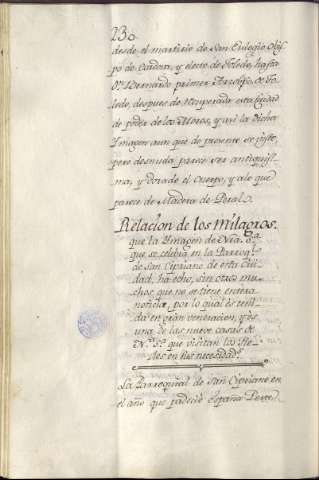 230
desde el martirio de San Eulogio Obis
po de Cordova, y electo de Toledo, hasta
Dn. Bernardo primer Arzobpo. de To
ledo, despues de recuperada esta Ciudad
de poder de los Moros, y assi la dicha
Ymagen aun que de presente es isto,
pero desnuda, parece ser antiquisi
ma, y dorado el cuerpo, y ale que
parece de Madera de Peral.
Relacion de los Milagros.
que la Ymagen de Nra. Sa.
que se celebra en la Parroql.
de San Cipriano de esta Ciu
dad, ha echo, sin otros mu
chos que no se tiene entera
noticia, por lo qual es teni
da en gran veneracion, y es
una de las nueve casas de
Na. Sa. que visitan los Fie
les en sus necesidads.
La Parroquial de San Cipriano en
el año que padeció España Perse